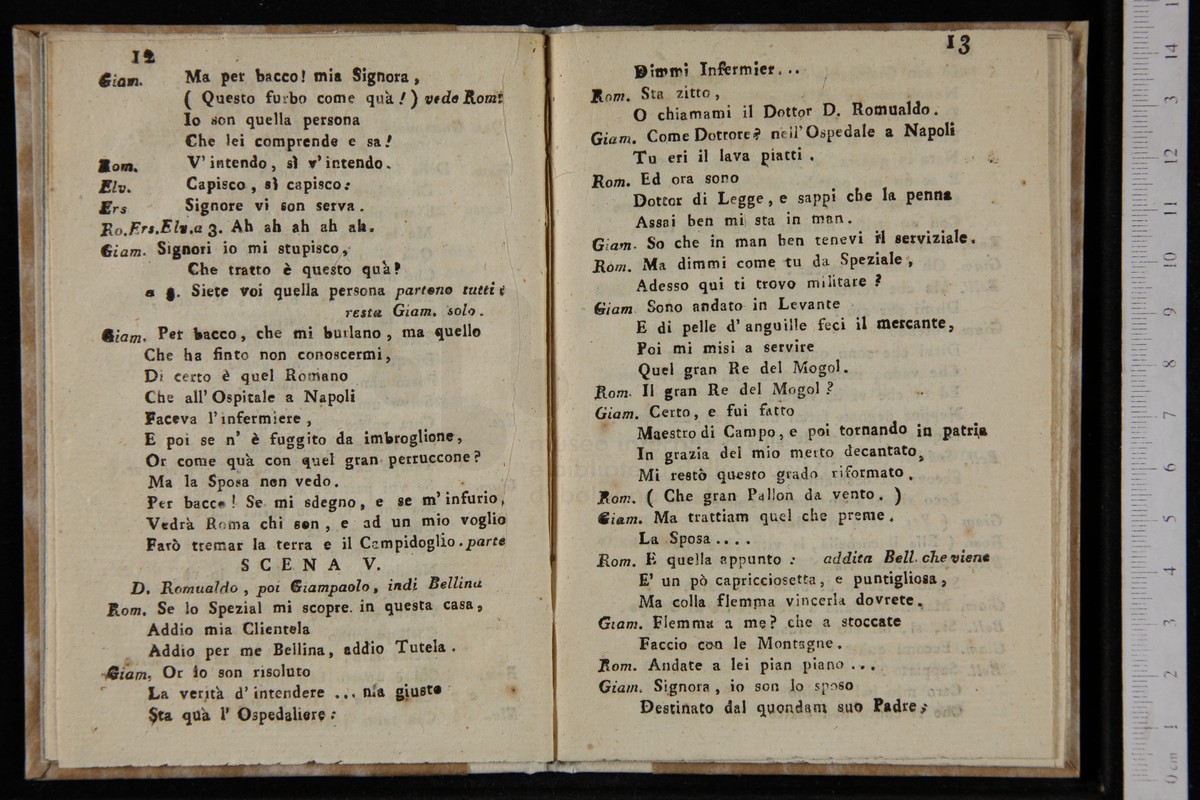 12
Giam. Ma per bacco! mia Signora,
( Questo furbo come quà! ) vede Rom:
Io son quella persona
Che lei comprende e sa!
Rom. V'intendo, sì v'intendo.
Elv. Capisco, sì capisco:
Ers Signore vi son serva.
Ro.Ers.Elv.a 3. Ah ah ah ah ah.
Giam. Signori io mi stupisco,
Che tratto è questo quà?
a 3. Siete voi quella persona partono tutti e
resta Giam. solo.
Giam. Per bacco, che mi burlano, ma quello
Che ha finto non conoscermi,
Di certo è quel Romano
Che all' Ospitale a Napoli
Faceva l'infermiere,
E poi se n' è fuggito da imbroglione,
Or come quà con quel gran perruccone?
Ma la Sposa non vedo.
Per bacco! Se mi sdegno, e se m'infurio,
Vedrà Roma chi son, e ad un mio voglio
Farò tremar la terra e il Campidoglio. parte
SCENA V.
D. Romualdo, poi Giampaolo, indi Bellina
Rom. Se lo Spezial mi scopre in questa casa,
Addio mia Clientela
Addio per me Bellina, addio Tutela.
Giam. Or io son risoluto
La verità d'intendere ... ma giusto
Sta quà l' Ospedaliere:
13
Dimmi Infermier...
Rom. Sta zitto,
O chiamami il Dottor D. Romualdo.
Giam. Come Dottore? nell'Ospedale a Napoli
Tu eri il lava piatti.
Rom. Ed ora sono
Dottor di Legge, e sappi che la penna
Assai ben mi sta in man.
Giam. So che in man ben tenevi il serviziale.
Rom. Ma dimmi come tu da Speziale,
Adesso qui ti trovo militare?
Giam Sono andato in Levante
E di pelle d'anguille feci il mercante,
Poi mi misi a servire
Quel gran Re del Mogol.
Rom. Il gran Re del Mogol?
Giam. Certo, e fui fatto
Maestro di Campo, e poi tornando in patria
In grazia del mio merto decantato,
Mi restò questo grado riformato.
Rom. ( Che gran Pallon da vento. )
Giam. Ma trattiam quel che preme.
La Sposa....
Rom. E quella appunto: addita Bell. che viene
E' un pò capricciosetta, e puntigliosa,
Ma colla flemma vincerla dovrete.
Giam. Flemma a me? che a stoccate
Faccio con le Montagne.
Rom. Andate a lei pian piano...
Giam. Signora, io son lo sposo
Destinato dal quondam suo Padre;